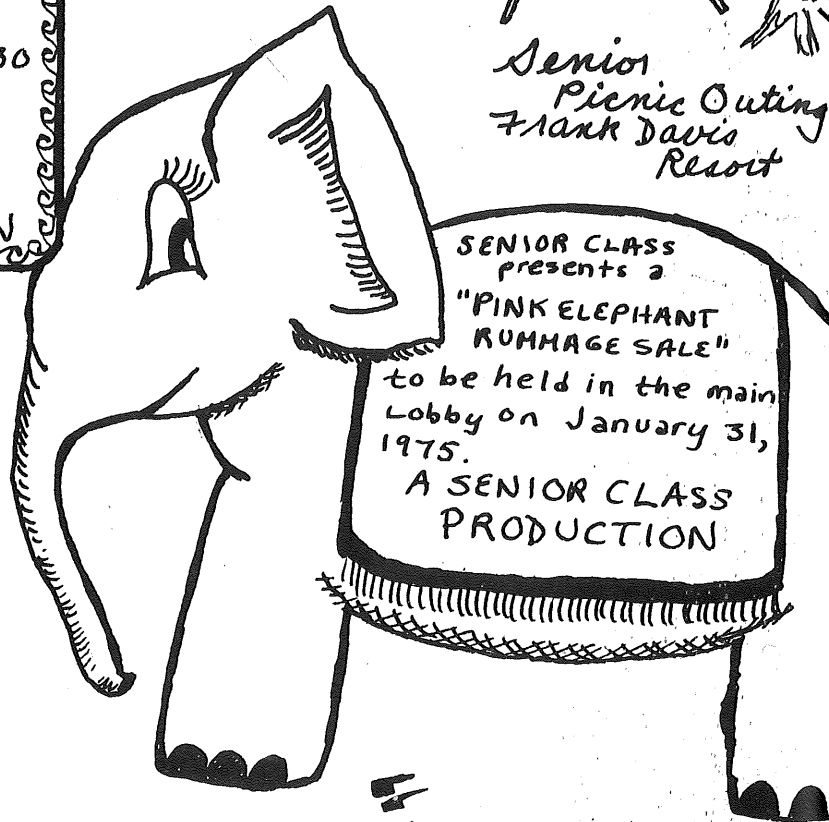 30
Senior
Picnic Outing
Frank Davis
Resort
SENIOR CLASS
presents a
"PINK ELEPHANT
RUMMAGE SALE"
to be held in the main
Lobby on January 31,
1975.
A SENIOR CLASS
PRODUCTION